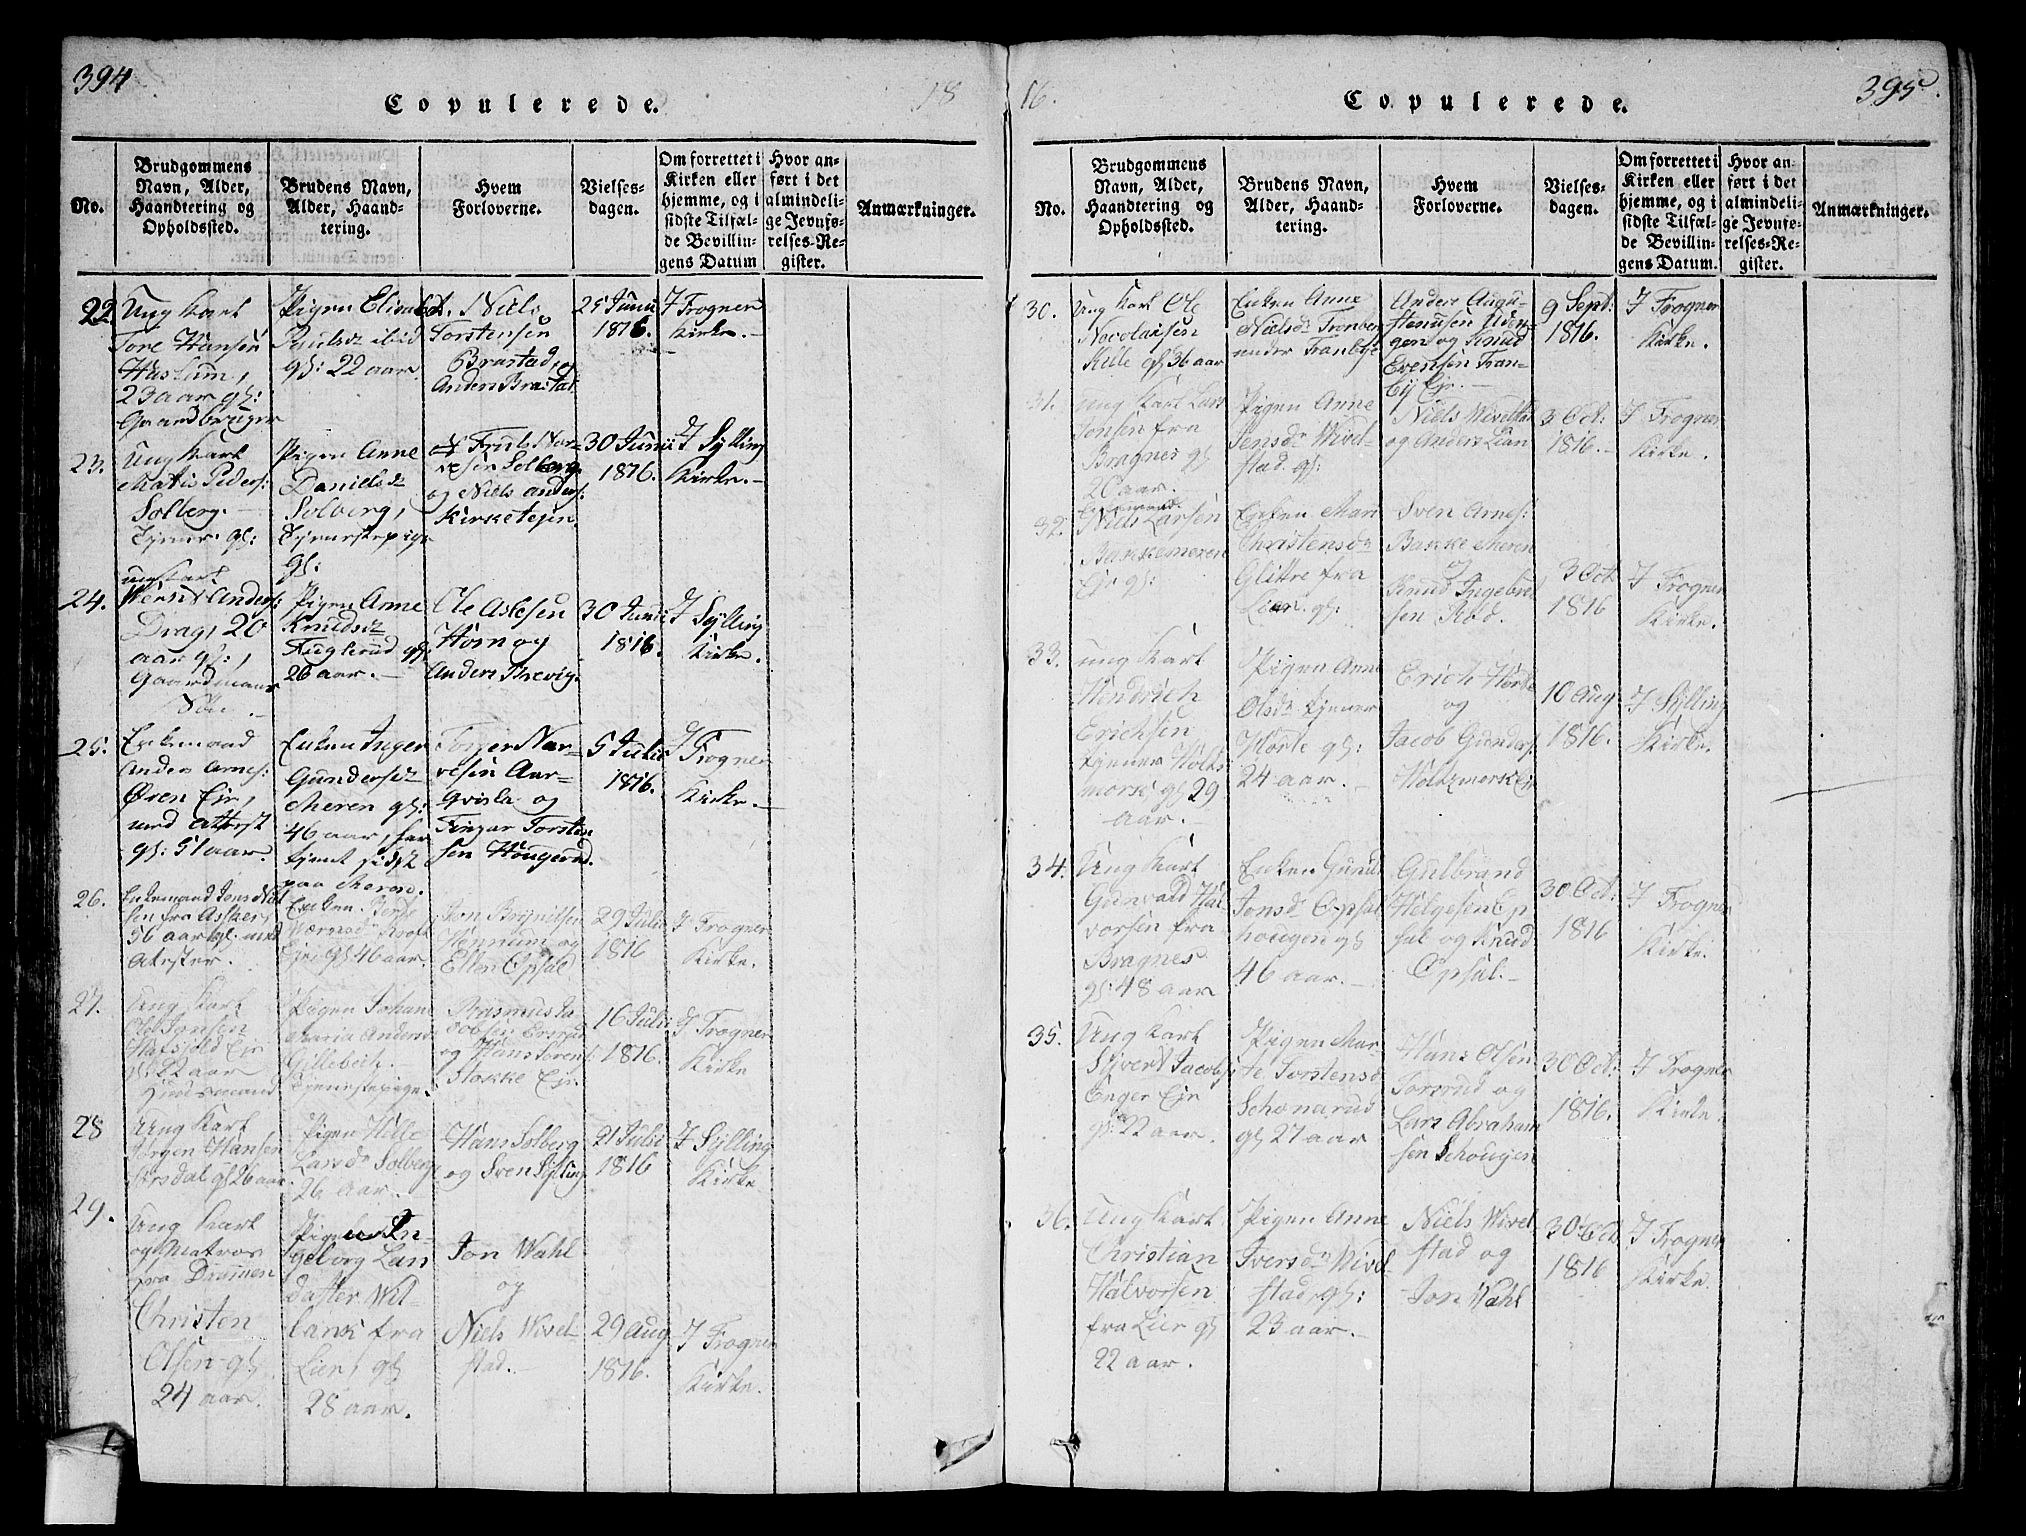 394
Copulerede.
18
No.
Brudgommens
Navn, Alder,
Haandtering og
Opholdssted.
Brudens Navn,
Alder, Haand-
tering.
Hvem
Forloverne.
Vielses-
dagen.
Om forrettet i
Kirken eller
hjemme, og i
sidste Tilfæl-
de Bevillin-
gens Datum
Hvor an-
ført i det
almindeli-
ge Jevnfø-
relses-Re-
gister.
Anmærkninger.
22.
Ung Karl
Tore Hansen
Haslum,
23 aar gl:
Gaardbruger
Pigen Elisabet
Paulsdr ibid
gl: 22 aar.
Niels
Torstensen
Brastad, og
Anders Brastad
25 Junii
1816.
I Frogner
Kirke.
23.
Ung Karl
Matis Peders:
Solberg.
Tjener gl:
Pigen Anne
Danielsdr
Solberg,
Tjenestepige
gl:
Solberg
og Niels Anders:
Kirketejen.
30 Junii
1816.
I Sylling
Kirke.
24.
Anders:
Drag, 20
aar gl:,
Gaardmans
Søn.
Pigen Anne
Knudsdr
Fuglerud gl:
26 aar.
Ole Aslesen
Horn og
Anders Brevig.
30 Junii
1816.
I Sylling
Kirke.
25.
Enkemand
Anders Arnes:
Øren Eje,
med Attest
gl: 51 aar.
Enken Inger
Gundersdr
Meren gl:
46 aar, har
tjent sidst
paa Meren.
Torger Nar-
vesen Aar-
qvisla og
Fingar Torsten
sen Hougerud.
5 Julii
1816.
I Frogner
Kirke.
26.
Enkemand Jens Niel
sen fra Asker,
56 aar gl: med
Atester.
Enken Berte
Eje gl 46 aar.
Jon Brynilsen
Hennum og
Ellen Opsal
29 Julii
1816
I Frogner
Kirke.
27.
Ung Karl
Ole Jonsen
Eje
gl 22 aar
Huusmand
Pigen Johan
Maria Anders
Gillebech
Tjenestepige.
Rasmus Ja
cobsen
og Hans Sørens:
Stokke Eje
16 Julii
1816.
I Frogner
Kirke
28
Ung Karl
Jørgen Hansen
gl 26 aar.
Pigen Helle
Larsdr Solberg
26 aar.
Hans Solberg
og Sven Sylling
21 Julii
1816
I Sylling
Kirke
29.
Ung Karl
og Matros
fra Drammen
Christen
Olsen gl
24 aar.
Pigen In-
geborg Lan
daster Wil-
lank fra
Lier, gl
28 aar.
Jon Wahl
og
Niels Wivel-
stad.
29 Aug
1816.
I Frogner
Kirke.
16.
Copulerede.
395.
No.
Brudgommens
Navn, Alder,
Haandtering og
Opholdssted.
Brudens Navn,
Alder, Haand-
tering.
Hvem
Forloverne.
Vielses-
dagen.
Om forrettet i
Kirken eller
hjemme, og i
sidste Tilfæl-
de Bevillin-
gens Datum.
Hvor an-
ført i det
almindeli-
ge Jevnfø-
relses-Re-
gister.
Anmærkninger.
30.
Ung Karl Ole
Nocolaisen
gl 36 aar
Enken Anne
Nielsdr Tronber
under Tranbye
Anders Augu-
stenusen
og Knud
Evensen Tran-
by Eje.
9 Sept:
1816.
I Frogner
Kirke.
31.
Ung Karl Lars
Jonsen fra
Bragnes gl
20 aar.
Pigen Anne
Jensdr Wivel-
stad gl:
Niels Wivelstad
og Anders Lian
3 Oct:
1816.
I Frogner
Kirke.
32.
Enkemand
Niels Larsen
Bakkemeren
Eje gl:
Enken Mari
Christensdr
Glitre fra
Lier gl:
Sven Arnes:
Bakke Meren
og
Knud Ingebret
sen Rød.
3 Oct
1816
I Frogner
Kirke.
33.
Ung Karl
Hendrich
Erichsen
tjener Holts
mork gl 29
aar.
Pigen Anne
Olsdr tjener
Horte gl:
24 aar.
Erich Horte
og
Jacob Gunders
Holtzmork Eje
10 Aug
1816.
I Sylling
Kirke.
34.
Ung Karl
Gunvald Hal-
vorsen fra
Bragnes
gl: 48 aar
Enken Gunil
Jonsdr Opsal
hougen gl
46 aar.
Gulbrand
Helgesen Op
sal og Knud
Opsal.
30 Oct:
1816
I Frogner
Kirke.
35.
Ung Karl
Syvert Jacobs
Enger Eje
gl: 22 aar.
Pigen Mar-
te Torstensd
Schonarud
gl 27 aar
Hans Olsen
Torsrud og
Lars Abraham
sen Schougen
30 Oct:
1816.
I Frogner
Kirke.
36.
Ung Karl
Christian
Halvorsen
fra Lier gl
22 aar.
Pigen Anne
Iversdr Wivel-
stad, gl:
23 aar.
Niels Wivel
stad og
Jon Wahl
30 Oct
1816
I Frogner
Kirke.